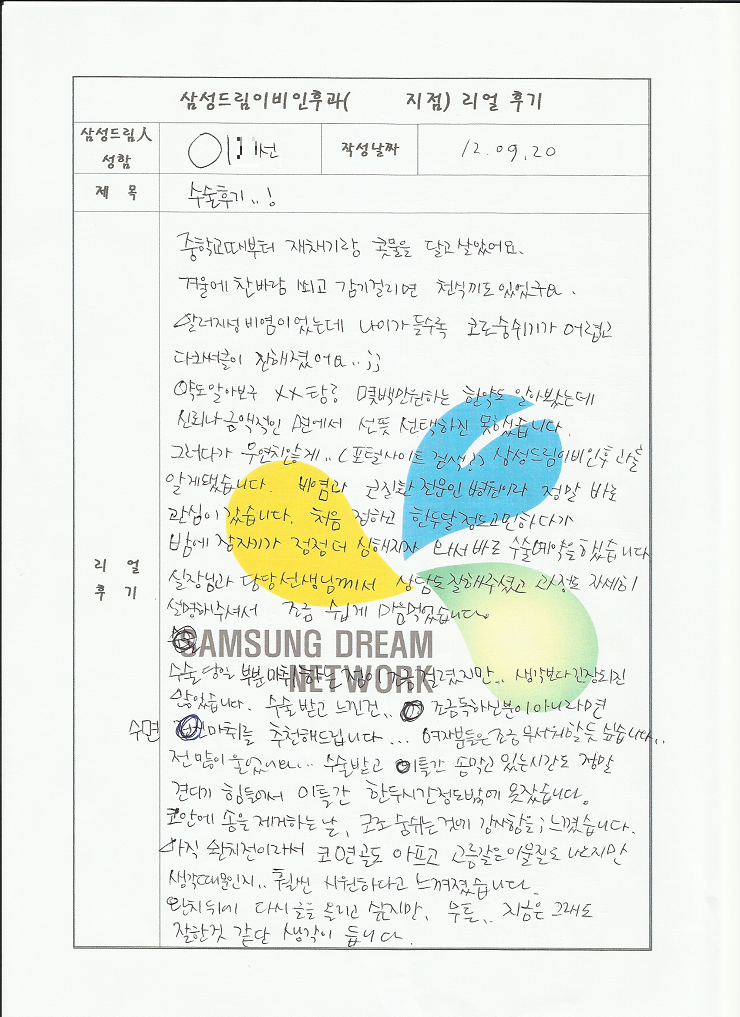 삼성드림이비인후과(        지점) 리얼 후기
삼성드림人 성함
작성날짜
12.09.20
제 목
수술후기..!
리 얼 후 기
중학교때부터 재채기랑 콧물을 달고 살았어요.
겨울에 찬바람 쐬고 감기걸리면 천식끼도 있었구요.
알러지성비염이었는데 나이가 들수록 코로숨쉬기가 어렵고
다크써클이 진해졌어요..;;
약도알아보구 XX탕등 몇백만원하는 한약도 알아봤는데
신뢰나 금액적인 면에서 선뜻 선택하진 못했습니다.
그러다가 우연치않게..(포털사이트 검색?) 삼성드림이비인후과를
알게됐습니다. 비염과 코질환 전문인 병원이라 정말 바로
관심이 갔습니다. 처음 접하고 한두달정도고민하다가
밤에 잠자기가 점점 더 심해지자 와서 바로 수술예약을했습니다
실장님과 담당선생님께서 상담도 잘해주셨고 과정도 자세히
설명해주셔서 조금 쉽게 마음먹었습니다.
SAMSUNG DREAM
NETWORK
수술 당일 부분마취하는 점이 조금 걸렸지만.. 생각보다 긴장되진
않았습니다. 수술 받고 느낀건.. 조금독하신분이아니라면
수면 마취를 추천해드립니다... 여자분들은조금 무서워할듯 싶습니다..
전 많이 울었네요... 수술받고 이틀간 솜막고 있는시간도 정말
견디기 힘들어서 이틀간 한두시간정도밖에 못잤습니다.
코안에 솜을 제거하는 날, 코로 숨쉬는것에 감사함을 느꼈습니다.
아직 완치전이라서 코 연골도 아프고 고름같은이물질도 나오지만
생각때문인지.. 훨씬 시원하다고 느껴졌습니다.
완치뒤에 다시 글을 올리고 싶지만, 무튼.. 지금은 그래도
잘한것 같단 생각이 듭니다.